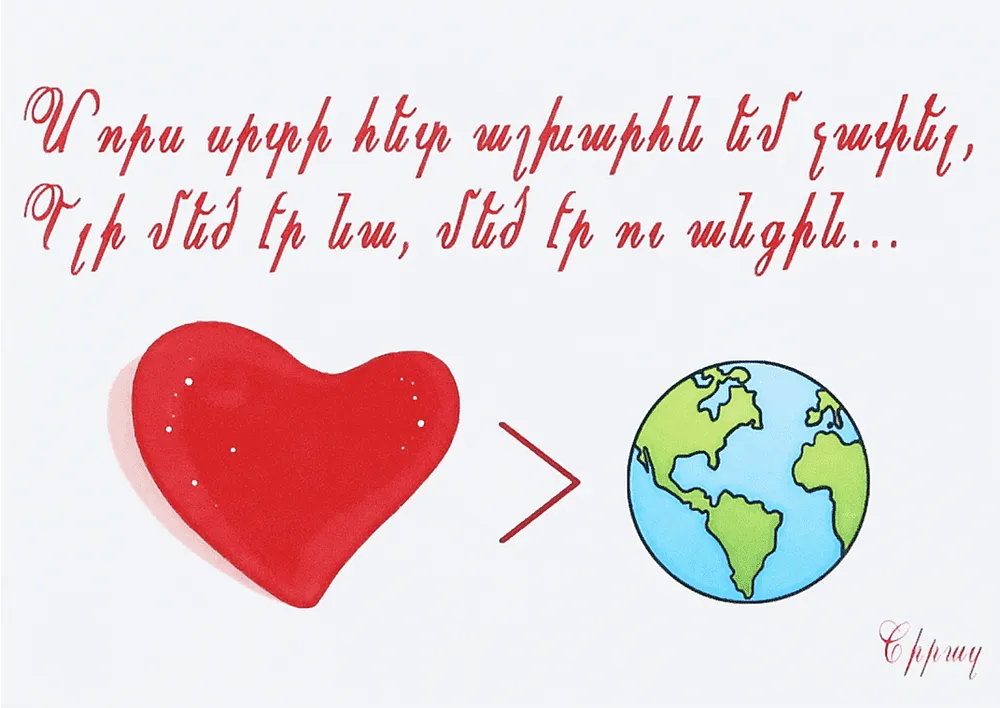 Մորս սրտի հետ աշխարհն եմ չափել,
Էլի մեծ էր նա, մեծ էր ու անգին...
Շիրազ